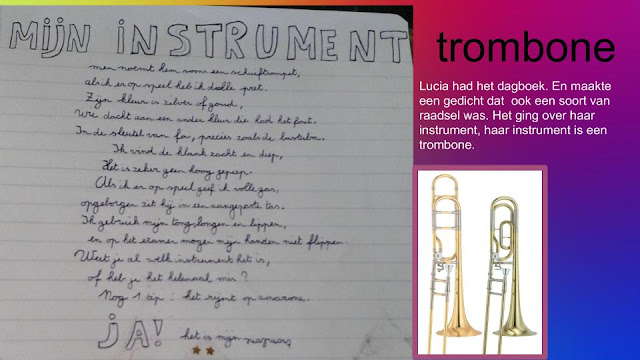 MIJN INSTRUMENT
men noemt hem soms een schuiftrompet,
als ik er op speel heb ik dolle pret.
Zijn kleur is zilver of goud,
Wie dacht aan een ander kleur die had het fout.
In de sleutel van fa, precies zoals de bastuba.
Ik vind de klank zacht en diep,
Het is zeker geen hoog gepiep.
Als ik er op speel geef ik volle gas,
opgeborgen zit hij in een aangepaste tas.
Ik gebruik mijn tong, longen en lippen,
en op het examen mogen mijn handen niet flippen.
Weet je al welk instrument het is,
of heb je het helemaal mis?
Nog 1 tip: het rijmt op
JA! het is mijn
trombone
Lucia had het dagboek. En maakte
een gedicht dat ook een soort van
raadsel was. Het ging over haar
instrument, haar instrument is een
trombone.